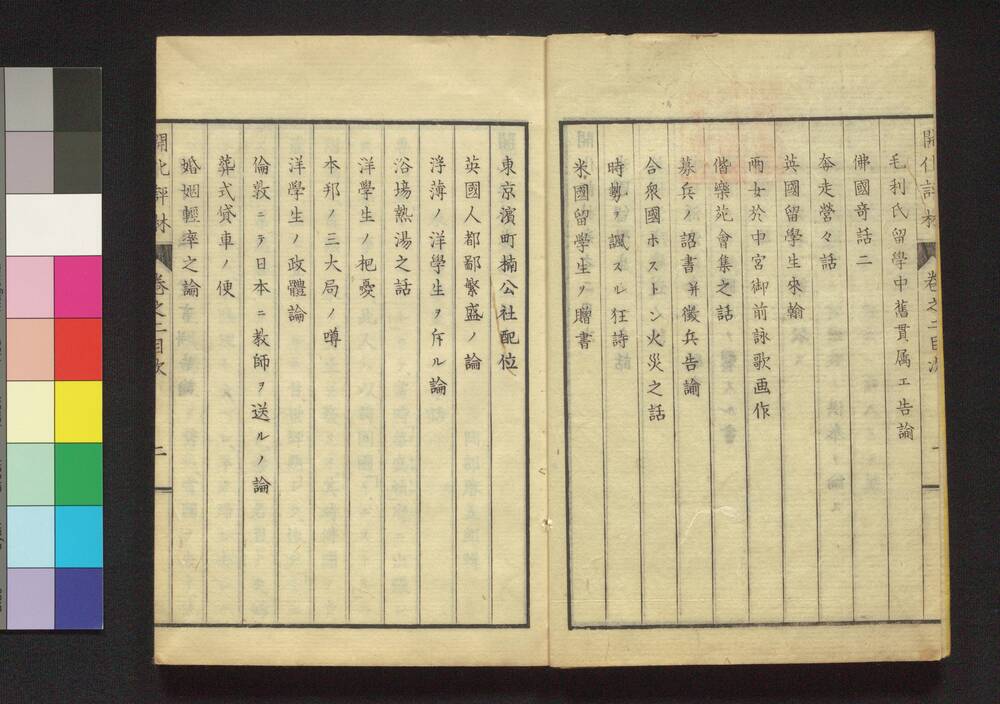 開化評林 卷之二目次 一
毛利氏留學中舊貫属エ告諭
佛國奇話二
奔走營々話
英國留學生來翰
両女於中宮御前詠歌画作
偕樂苑會集之話
募兵ノ詔書并徴兵告諭
合衆國ホストン火災之話
時勢ヲ諷スル狂詩
米國留学生ノ贈書
東京濱町楠公社配位
英國人都鄙繁盛ノ論
浮薄ノ洋學生ヲ斥ル論
浴場熱湯之話
洋學生ノ杞憂
本邦ノ三大局ノ噂
洋學生ノ政體論
倫敦ニテ日本ニ教師ヲ送ルノ論
葬式貸車ノ便
婚姻輕率之論
開化評林 卷之二目次 二